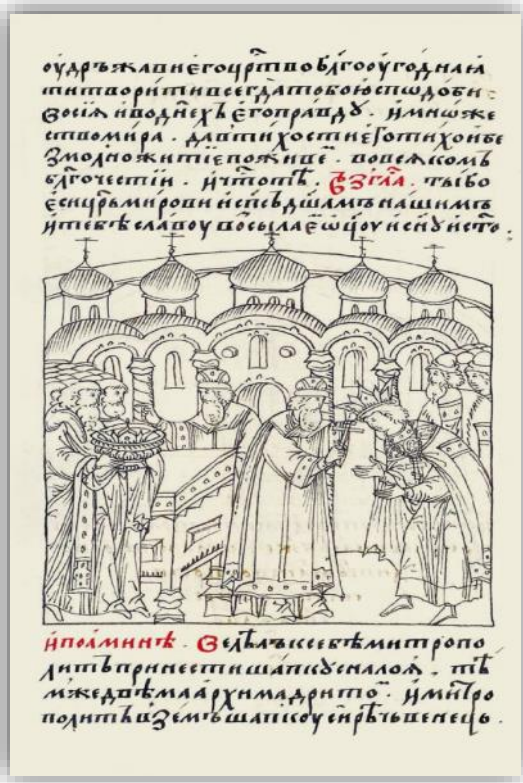 оудръжавиегоцр҃твоблг҃ооугоднаꙗ
титворитивсегдатобоюспѡдоби
восїаиводнехъегоправдꙋ . имнѡже
ствомира . давтихостиеготихоибе
змолножитїепоживе . вовсякомъ
блг҃очестїи . ичтⷭ҇отѣ . възгл҃а . тыбо
есицр҃ьмировииспⷭ҇ъдш҃амънашимъ
итебѣславоувосылаеѡц҃оуисн҃ꙋист҃о :
ипоаминѣ . Велѣлъксебѣмитропо
литъпринестишапкꙋсналоꙗ . тѣ
мжедвѣмаархимадрито . имитро
политъвземъшапкоусирѣчьвенець .